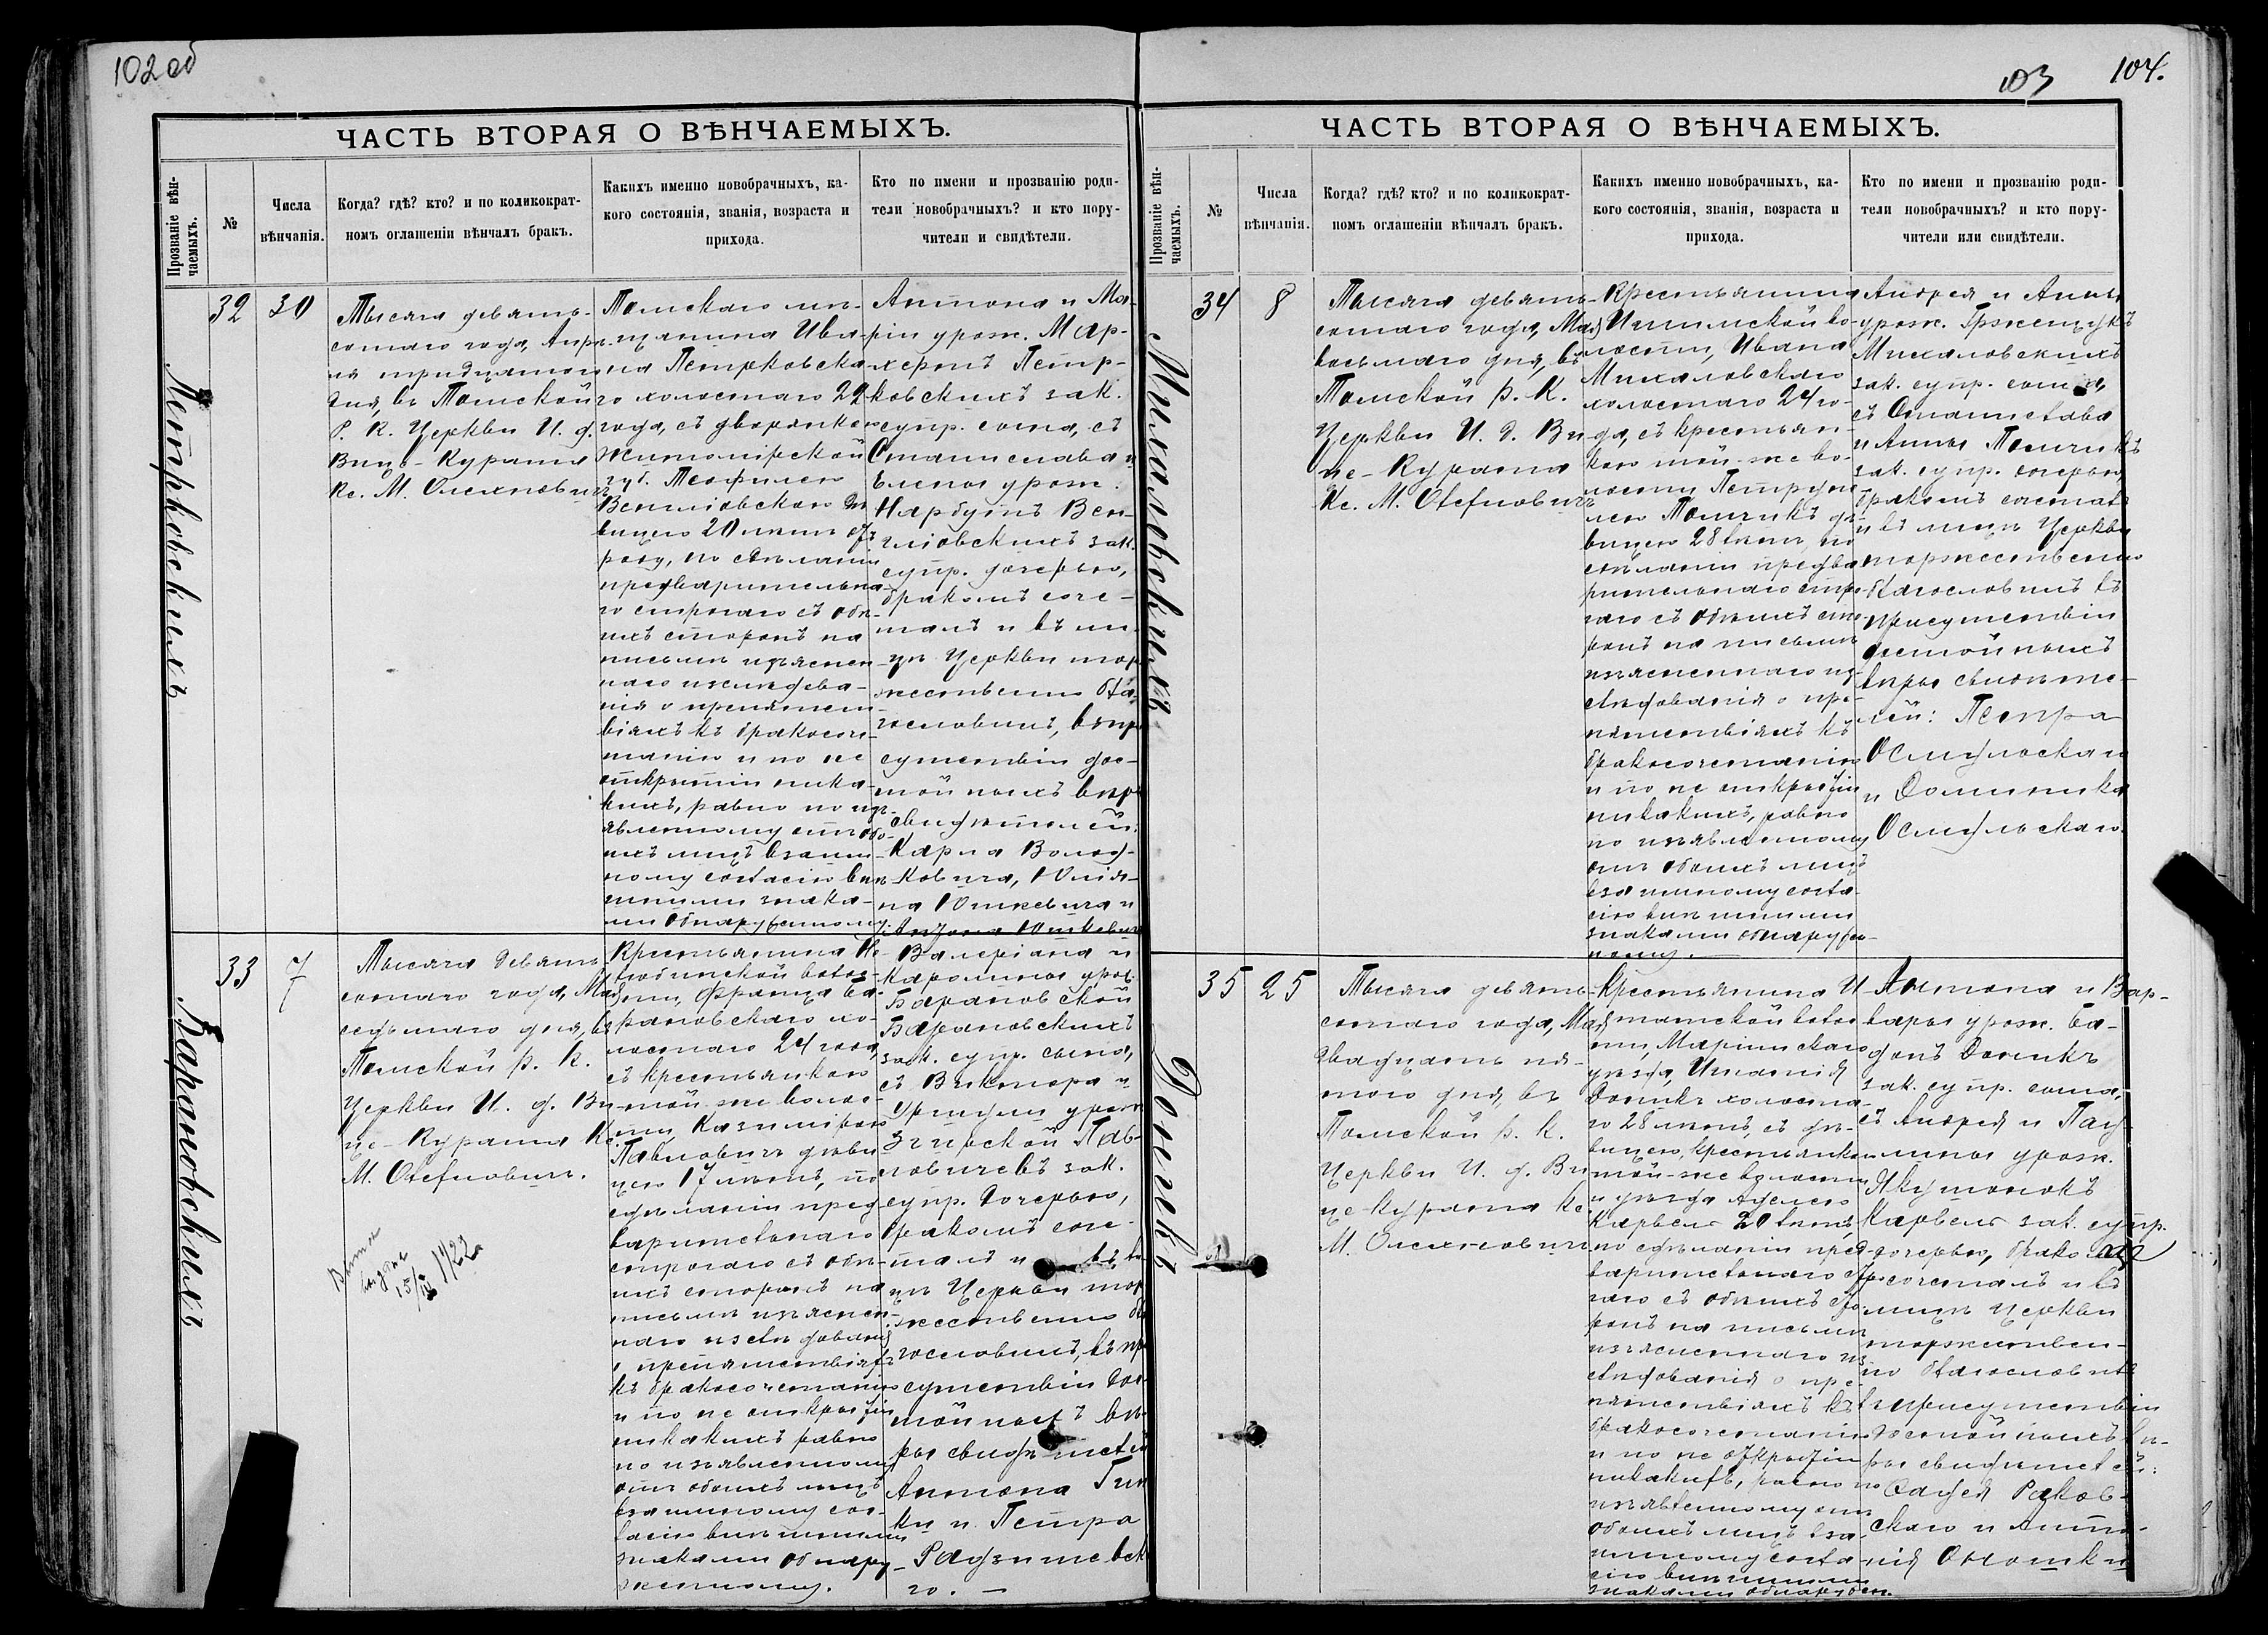 102 об
ЧАСТЬ ВТОРАЯ О ВѢНЧАЕМЫХЪ.
Прозваніе вѣнчаемыхъ.
№
Числа
вѣнчанія.
Когда? гдѣ? кто? и по коликократ-
номъ оглашеніи вѣнчалъ бракъ.
Какихъ именно новобрачныхъ, ка-
кого состоянія, званія, возраста и
прихода.
Кто по имени и прозванію роди-
тели новобрачныхъ? и кто пору-
чители и свидѣтели.
Петрковскихъ
32
30
Тысяча девять-
сотаго года, Апрѣ-
ля тридцатого
дня, въ Томской
Р. К. Церкви И. д.
Вице-Курата
Кс. М. Олехновичъ
Томскаго мѣ-
щанина Ива-
на Петрковска-
го холостаго 22
года, съ дворянкою
Житомірской
губ. Теофилею
Венгловскою дѣ-
вицею 20 лѣтъ отъ
роду, по сдѣланіи
предварительна-
го строгаго съ обѣ-
ихъ сторонъ на
письмѣ изъяснен-
наго изслѣдова-
нія о препятст-
віяхъ къ бракосоче-
танію и по не
открытіи ника-
кихъ, равно по изъ-
явленному отъ обо-
ихъ лицъ взаим-
ному согласію внѣ-
шними знака-
ми обнаруженному
Антона и Ма-
ріи урож. Мар-
хертъ Петр-
ковскихъ зак.
супр. сына, съ
Станислава и
Елены урож.
Нарбутъ Вен-
гловскихъ зак.
супр. дочерью,
бракомъ соче-
талъ и въ ли-
цѣ Церкви тор-
жественно бла-
гословилъ, въ при-
сутствіи дос-
тойныхъ вѣры
свидѣтелей:
Карла Волод-
ковича, Юлія-
на Юшкевича и
Антона Юшкевича
Барановскихъ
33
7
Тысяча девять-
сотаго года, Мая
седьмаго дня, въ
Томской Р. К.
Церкви И. д. Ви-
це-Курата Кс.
М. Олехновичъ.
15/IX 1922
Крестьянина
волос-
ти, Франца Ба-
рановскаго хо-
лостаго 24 года,
съ крестьянкою
той-же волос-
ти, Казимірою
Павловичъ дѣви-
цею 17 лѣтъ, по
сдѣланіи пред-
варительнаго
строгаго съ обѣ-
ихъ сторонъ на
письмѣ изъяснен-
наго изслѣдованія
о препятствіяхъ
къ бракосочетанію
и по не открытіи
никакихъ равно
по изъявленному
отъ обоихъ лицъ
взаимному сог-
ласію внѣшними
знаками обнару-
женному.
Валеріана и
Каролины урож.
Барановской
Барановскихъ
зак. супр. сына,
съ Виктора и
Уршули урож.
Павловичевъ зак.
супр. дочерью,
бракомъ соче-
талъ и въ ли-
цѣ Церкви тор-
жественно бла-
гословилъ, въ при-
сутствіи дос-
тойныхъ вѣ-
ры свидѣтелей
Антона
и Петра
го. —
103 104.
ЧАСТЬ ВТОРАЯ О ВѢНЧАЕМЫХЪ.
Прозваніе вѣнчаемыхъ.
№
Числа
вѣнчанія.
Когда? гдѣ? кто? и по коликократ-
номъ оглашеніи вѣнчалъ бракъ.
Какихъ именно новобрачныхъ, ка-
кого состоянія, званія, возраста и
прихода.
Кто по имени и прозванію роди-
тели новобрачныхъ? и кто пору-
чители или свидѣтели.
Михаловскихъ
34
8
Тысяча девять-
сотаго года, Мая
восьмаго дня, въ
Томской Р. К.
Церкви И. д. Ви-
це-Курата
Кс. М. Олехновичъ
Крестьянина
Ишимской во-
лости, Ивана
Михаловскаго
холостаго 24 го-
да, съ крестьян-
кою той-же во-
лости
дѣ-
вицею 28 лѣтъ, по
сдѣланіи предва-
рительнаго стро-
гаго съ обѣихъ сто-
ронъ на письмѣ
изъясненнаго из-
слѣдованія о пре-
пятствіяхъ къ
бракосочетанію
и по не открытіи
никакихъ, равно
по изъявленному
отъ обоихъ лицъ
взаимному согла-
сію внѣшними
знаками обнаружен-
ному.
Андрея и Анны
урож.
Михаловскихъ
зак. супр. сына,
съ Станислава
и Анны
зак. супр. дочерью,
бракомъ сочеталъ
и въ лицѣ Церкви
торжественно
благословилъ въ
присутствіи
достойныхъ
вѣры свидѣте-
лей: Петра
Осмульскаго
и Доминика
Осмульскаго.
Доникъ
35
25
Тысяча девять-
сотаго года, Мая
двадцать пя-
того дня, въ
Томской Р. К.
Церкви И. д. Ви-
це-Курата Кс.
М. Олехновичъ
Крестьянина И-
татской волос-
ти, Маріинскаго
уѣзда, Игнатія
Доникъ холоста-
го 28 лѣтъ, съ дѣ-
вицею, крестьянкою
той-же волости
и уѣзда Аделею
Карвель 20 лѣтъ,
по сдѣланіи пред-
варительнаго стро-
гаго съ обѣихъ сто-
ронъ на письмѣ
изъясненнаго из-
слѣдованія о пре-
пятствіяхъ къ
бракосочетанію
и по не открытіи
никакихъ, равно по
изъявленному отъ
обоихъ лицъ вза-
имному согла-
сію внѣшними
знаками обнаружен.
Антона и Вар-
вары урож.
Доникъ
зак. супр. сына,
съ Андрея и Пау-
лины урож.
Якушонокъ
Карвель зак. супр.
дочерью, бракомъ
сочеталъ и въ
лицѣ Церкви
торжествен-
но благословилъ
въ присутствіи
достойныхъ вѣ-
ры свидѣтелей:
Раков-
скаго и Анто-
нія